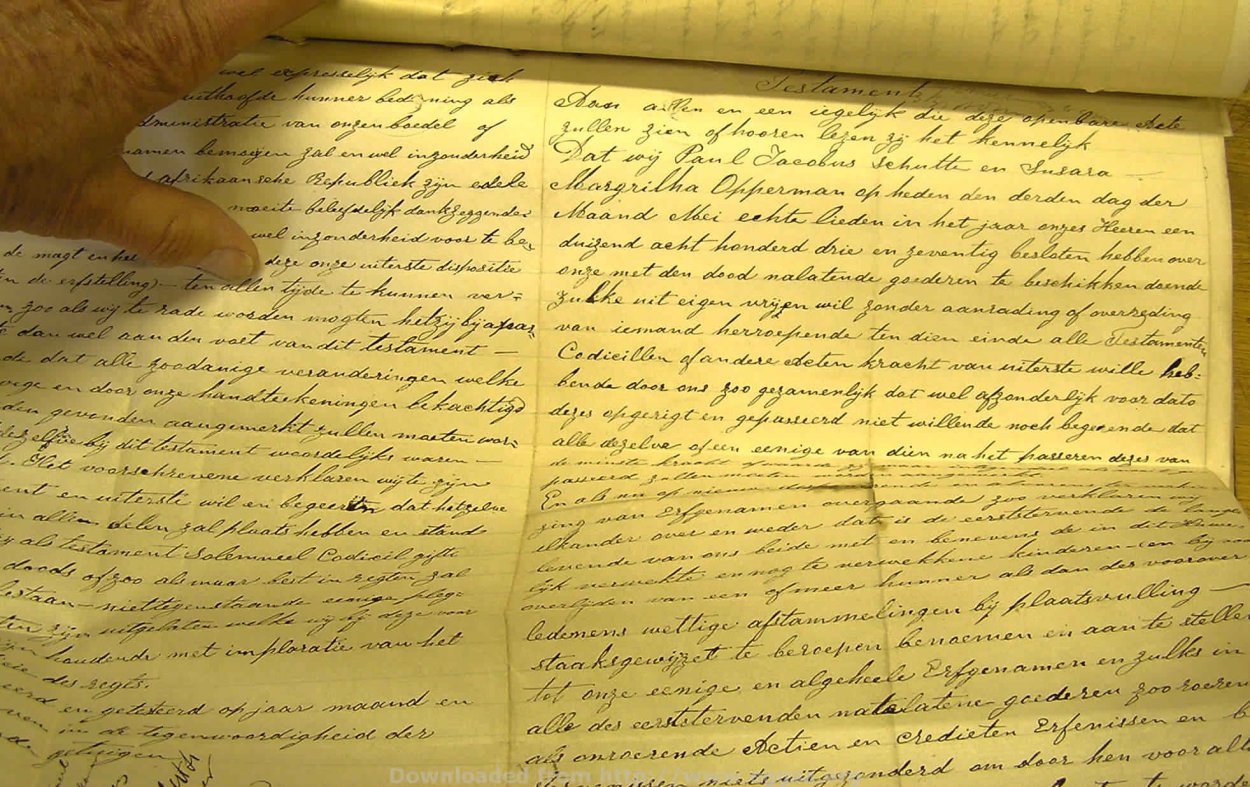 wel expresselijk dat zich
uithoofde hunner bediening als
administratie van onzen boedel of
namen bemoeijen zal en wel inzonderheid
afrikaansche Republiek zijn edele
moeite beleefdelijk dankzeggende
wel inzonderheid voor te be-
de magt en het deze onze uiterste dispositie
de erfstelling) — ten allen tijde te kunnen ver=
zoo als wij te rade worden mogten hetzij bij apar
dan wel aan den voet van dit testament —
dat alle zoodanige veranderingen welke
en door onze handteekeningen bekachtigd
den gevonden aangemerkt zullen moeten wor-
dezelfve bij dit testament woordelijks waren —
Het voorschrevene verklaren wij te zijn
en uiterste wil en begeeren dat hetzelve
in allen delen zal plaats hebben en stand
als testament Solemneel Codicil gifte
doods of zoo als maar best in regten zal
bestaan — niettegenstaande eenige plege
zijn uitgelaten welke wij bij deze voor
houdende met imploratie van het
des regts.
en getesteerd op jaar maand en
in de tegenwoordigheid der
getuigen
Testament
Aan allen en een iegelijk die deze openbare Acte
zullen zien of hooren lezen zij het kennelijk
Dat wij Paul Jacobus Schutte en Susara —
Margritha Opperman op heden den derden dag der
Maand Mei echte lieden in het jaar onzes Heeren een
duizend acht honderd drie en zeventig besloten hebben over
onze met den dood nalatende goederen te beschikken doende
zulke uit eigen vrijen wil zonder aanrading of overreding
van iemand herroepende ten dien einde alle Testamenten
Codicillen of andere Acten kracht van uiterste wille heb=
bende door ons zoo gezamenlijk dat wel afzonderlijk voor dato
dezes opgerigt en gepasseerd niet willende noch begeerende dat
alle dezelve of een eenige van dien na het passeren dezes van
de minste kracht of waarde
passeerd zullen
En als nu op nieuw
zing van Erfgenamen overgaande zoo verklaren wij
elkander over en weder dat is de eerststervende de langst
levende van ons beide met en benevens de in dit Huwe
lijk verwekte en nog te verwekkene kinderen — en bij
overlijden van een of meer hunner als dan des voorover
ledenens wettige afstammelingen bij plaatsvulling —
staaksgewijzet te beroepen benoemen en aan te stellen
tot onze eenige en algeheele Erfgenamen en zulks in
alle des eerststervenden natelatene goederen zoo roeren
als onroerende Actien en credieten Erfenissen en b
niets uitgezonderd om door hen voor alt